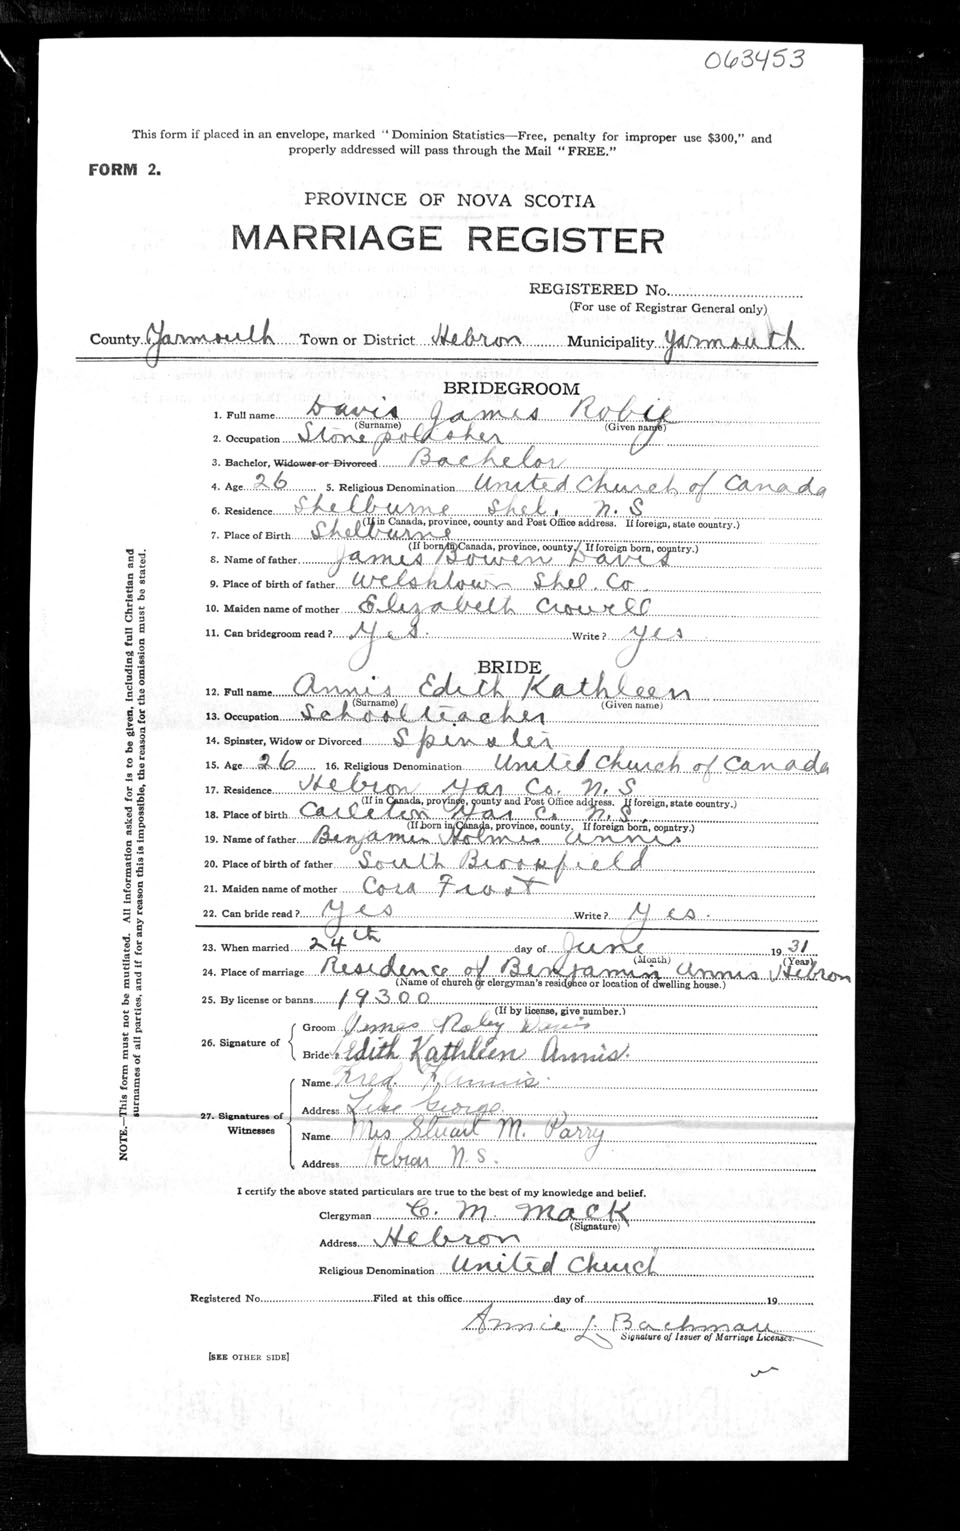 063453
This form if placed in an envelope, marked "Dominion Statistics—Free, penalty for improper use $300," and
properly addressed will pass through the Mail "FREE."
FORM 2.
PROVINCE OF NOVA SCOTIA
MARRIAGE REGISTER
REGISTERED No.
(For use of Registrar General only)
County Yarmouth Town or District Hebron Municipality Yarmouth
BRIDEGROOM
1. Full name Davis James Roby
(Surname) (Given name)
2. Occupation Stone polisher
3. Bachelor, Widower or Divorced Bachelor
4. Age 26 5. Religious Denomination United Church of Canada
6. Residence Shelburne Shel. N. S
(If in Canada, province, county and Post Office address. If foreign, state country.)
7. Place of Birth Shelburne
(If born in Canada, province, county. If foreign born, country.)
8. Name of father James Bowen Davis
9. Place of birth of father Welshtown Shel. Co
10. Maiden name of mother Elizabeth Crowell
11. Can bridegroom read? Yes. Write? Yes
BRIDE
12. Full name Annis Edith Kathleen
(Surname) (Given name)
13. Occupation School teacher
14. Spinster, Widow or Divorced Spinster
15. Age 26 16. Religious Denomination United Church of Canada
17. Residence Hebron Yar Co. N. S
(If in Canada, province, county and Post Office address. If foreign, state country.)
18. Place of birth Carleton Yar Co N. S.
(If born in Canada, province, county. If foreign born, country.)
19. Name of father Benjamin Holmes Annis
20. Place of birth of father South Brookfield
21. Maiden name of mother Cora Frost
22. Can bride read? Yes Write? Yes.
23. When married 24th day of June 1931
(Month) (Year)
24. Place of marriage Residence of Benjamin Annis Hebron
(Name of church or clergyman's residence or location of dwelling house.)
25. By license or banns 19300
(If by license, give number.)
26. Signature of
Groom James Roby Davis
Bride Edith Kathleen Annis.
27. Signatures of Witnesses
Name Fred Annis.
Address Lake George
Name Mrs Stuart M. Parry
Address Hebron N. S.
I certify the above stated particulars are true to the best of my knowledge and belief.
Clergyman C. M. Mack
(Signature)
Address Hebron
Religious Denomination United Church
Registered No. Filed at this office day of 19
Annie L. Bachman
Signature of Issuer of Marriage Licenses.
[SEE OTHER SIDE]
NOTE.—This form must not be mutilated. All information asked for is to be given, including full Christian and
surnames of all parties, and if for any reason this is impossible, the reason for the omission must be stated.